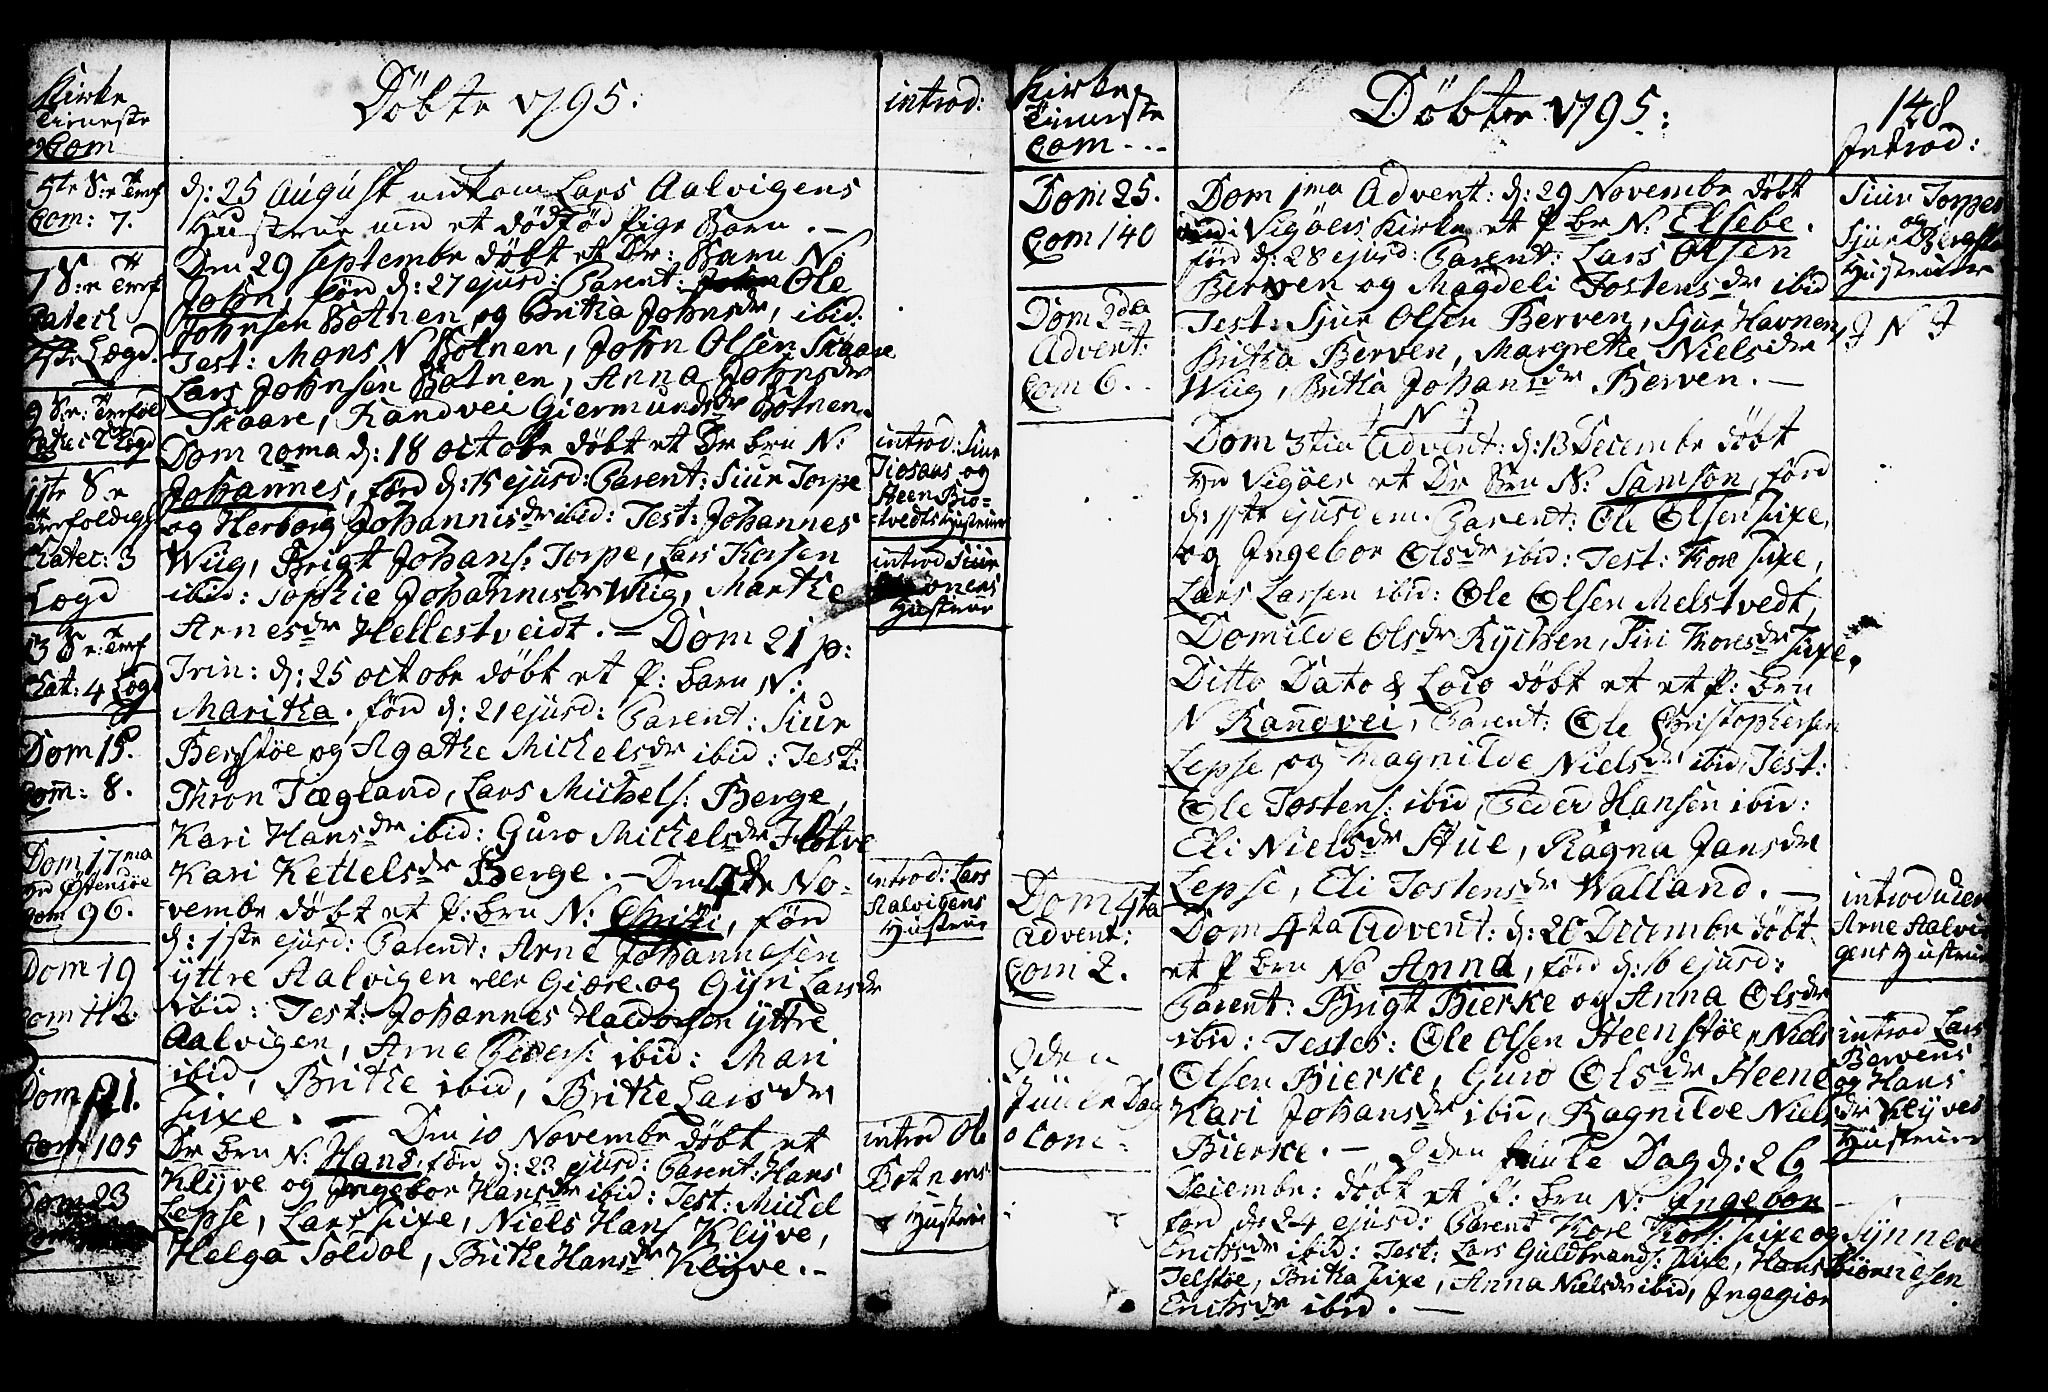 Kirke
Tieneste
Com
Döbte 1795:
introd:
5te S:e Tref
Com: 7.
7 S:e Tref
Catech
Lægd.
9 S:e: Trefol
Catec Lægd
11te S:e
Trefoldigh
Catec: 3
Lægd
13 S:e: Tref
Cat: 4 Lægd
Dom 15.
Com: 8.
Dom 17ma
Östensöe
Com 96.
Dom 19
Com 112
Dom 21.
Com 105
Dom 23
d: 25 August nedkom Lars Aalvigens
Hustrue med et dödföd Pige Barn. —
Den 29 Septembr döbt et Dr: Barn N:
John, föed d: 27 ejusd: Parent: Ole
Johnsen Botnen, og Britha Johnsdr, ibid:
Test: Mons N Botnen, John Olsen Skaare
Lars Johnsen Botnen, Anna Johnsdr
Skaare, Randvei Giermundsdr Botnen.
Dom 20ma d: 18 octobr döbt et Dr brn N:
Johannes, föed d: 15 ejusd: Parent: Siur Torpe
og Herborg Johannisdr ibid: Test: Johannes
Wiig, Brigt Johans: Torpe, Lars Korsen
ibid: Sophie Johannisdr Wiig, Marthe
Arnesdr Hellestveidt. — Dom 21 p:
Trin: d: 25 octobr döbt et P: barn N:
Maritha. föed d: 21 ejusd: Parent: Siur
Berstöe og Agathe Michelsdr ibid: Test:
Thron Tægland, Lars Michels: Berge,
Kari Hansdr ibid: Guro Michelsdr Flotve
Kari Kettelsdr Berge. — Den No-
vembr döbt et P: brn N: , föed
d: 1ste ejusd: Parent: Arne Johannesen
yttre Aalvigen elle Giære og Gÿri Larsdr
ibid: Test: Johannes Haldorsen ÿttre
Aalvigen, Arne Peders: ibid: Mari
ibid, Brithe ibid, Brithe Larsdr
Fixe. — Den 10 Novembr döbt et
Dr brn N: Hans, föed d: 23 ejusd: Parent: Hans
Klÿve og Ingebor Hansdr ibid: Test: Michel
Lepse, Lars Fixe, Niels Hans Klÿve,
Helga Soldal, Brithe Hansdr Klÿve. —
introd: Siur
Tiosaas og
Steen Bio-
-tvedts Hustruer
introd Siur
Hustrue
introd: Lars
Aalvigens
Hustrue
introd Ole
Botnens
Hustrue
Kirke
Tieneste
Com - . .
Döbte 1795:
148
Introd:
Dom 25.
Com 140
Dom 2da
Advent:
Com 6. . .
Dom 4ta
Advent:
Com 2.
2den
Juule Dag
Com:
Dom 1ma Advent: d: 29 Novembr döbt
Vigöers Kirke et P brn N: Elsebe.
föed d: 28 ejusd: Parent: Lars Olsen
Berven og Magdeli Tostensdr ibid
Test: Sjur Olsen Berven, Sjur Havnen,
Britha Berven, Margrethe Nielsdr
Wiig, Britha Johansdr Berven. —
J N J
Dom 3tia Advent: d: 13 Decembr döbt
Vigöer et Dr Brn N: Samson, föed
d: 11te ejusdem. Parent: Ole Olsen Fixe,
og Ingebor Olsdr ibid: Test: Kore Fixe,
Lars Larsen ibid: Ole Olsen Melstvedt,
Domilde Olsdr Rÿchen, Siri Thoresdr Fixe.
Ditto Dato & Loco döbt et et P: brn
N Randvei, Parent: Ole Christophersen
Lepse, og Magnilde Nielsdr ibid, Test:
Ole Tostens: ibid, Peder Hansen ibid:
Eli Nielsdr Hue, Ragna Jansdr
Lepse, Eli Tostensdr Walland. —
Dom 4ta Advent: d: 20 Decembr döbt
et P brn No Anna, föed d: 16 ejusd:
Parent: Brigt Bierke og Anna Olsdr
ibid: Testes: Ole Olsen Steenstöe, Niels
Olsen Bierke, Guro Olsdr Steene
Kari Johansdr ibid, Ragnilde Niels
Bierke. — 2den Juule Dag d: 26
Decembr: döbt et P: brn N: Ingebor
föed d: 24 ejusd: Parent Kore Kors: Fixe og Sÿnneve
Erichsdr ibid: Test: Lars Guldbrands: Fixe, Hans Biörnesen
Telstöe, Britha Fixe, Anna Nielsdr ibid, Ingegiær
Erichsdr ibid. —
Siur Torpes
og
Sjur Bergstö
Hustruer
J N J
introducer
Arne Aalvi-
gens Hustrue
introd Lars
Bervens
og Hans
Klÿves
Hustruer